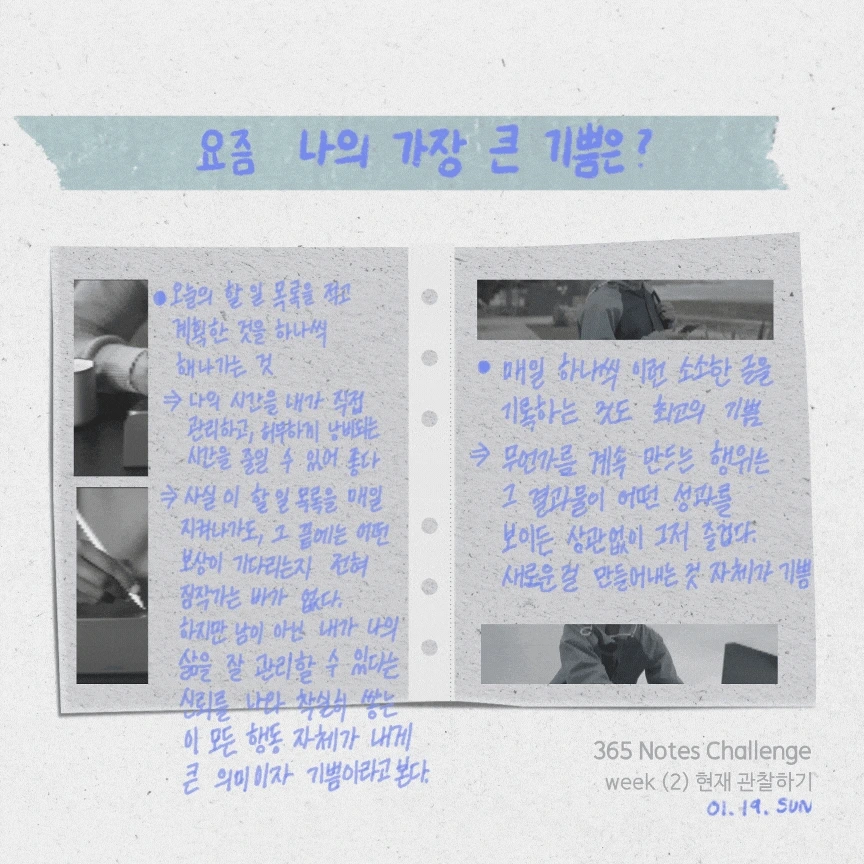 요즘 나의 가장 큰 기쁨은?
• 오늘의 할 일 목록을 적고
계획한 것을 하나씩
해나가는 것
⇒ 나의 시간을 내가 직접
관리하고, 허투루하게 낭비되는
시간을 줄일 수 있어 좋다
⇒ 사실 이 할 일 목록을 매일
지켜나가도, 그 끝에는 어떤
보상이 기다리는지 전혀
짐작가는 바가 없다.
하지만 남이 아닌 내가 나의
삶을 잘 관리할 수 있다는
신뢰를 나와 착실히 쌓는
이 모든 행동 자체가 내게
큰 의미이자 기쁨이라고 본다.
• 매일 하나씩 이런 소소한 글을
기록하는 것도 최고의 기쁨
⇒ 무언가를 계속 만드는 행위는
그 결과물이 어떤 성과를
보이든 상관없이 그저 즐겁다.
새로운 걸 만들어내는 것 자체가 기쁨
365 Notes Challenge
week (2) 현재 관찰하기
01. 19. SUN